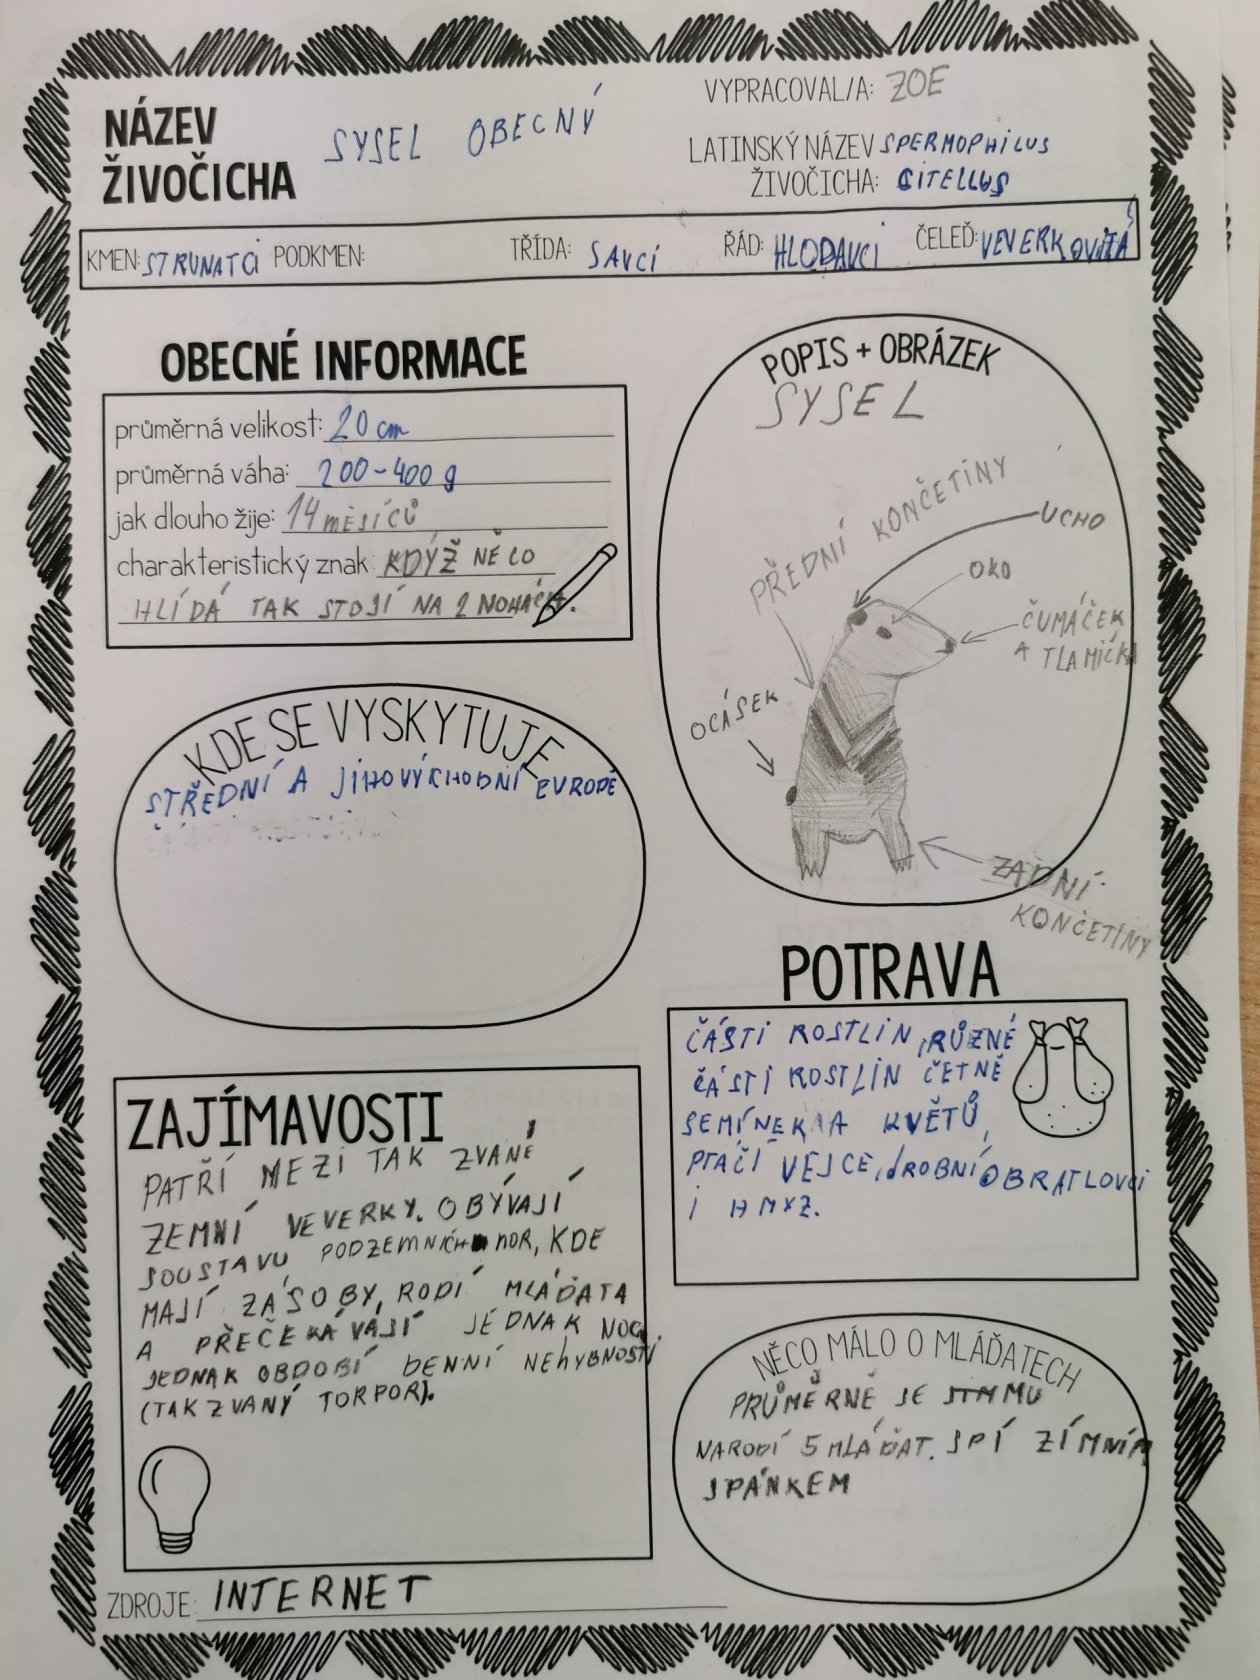 VYPRACOVAL/A: ZOE
NÁZEV
ŽIVOČICHA
SYSEL OBECNÝ
LATINSKÝ NÁZEV SPERMOPHILUS
ŽIVOČICHA: CITELLUS
KMEN: STRUNATCI PODKMEN: TŘÍDA: SAVCI ŘÁD: HLODAVCI ČELEĎ: VEVERKOVITÁ
OBECNÉ INFORMACE
průměrná velikost: 20 cm
průměrná váha: 200-400 g
jak dlouho žije: 14 MĚSÍCŮ
charakteristický znak: KDYŽ NĚCO
HLÍDÁ TAK STOJÍ NA 2 NOHÁCH.
POPIS + OBRÁZEK
SYSEL
PŘEDNÍ KONČETINY
UCHO
OKO
ČUMÁČEK
A TLAMIČKA
OCÁSEK
ZADNÍ
KONČETINY
KDE SE VYSKYTUJE
STŘEDNÍ A JIHOVÝCHODNÍ EVROPĚ
POTRAVA
ČÁSTI ROSTLIN, RŮZNÉ
ČÁSTI ROSTLIN ČETNĚ
SEMÍNEK A KVĚTŮ,
PTAČÍ VEJCE, dROBNÍ OBRATLOVCI
I HMYZ.
ZAJÍMAVOSTI
PATŘÍ MEZI TAK ZVANÉ
ZEMNÍ VEVERKY. OBÝVAJÍ
SOUSTAVU PODZEMNÍCH NOR, KDE
MAJÍ ZÁSOBY, RODÍ MLÁĎATA
A PŘEČEKÁVAJÍ JEDNAK NOC
JEDNAK OBDOBÍ DENNÍ NEHYBNOSTI
(TAK ZVANÝ TORPOR).
NĚCO MÁLO O MLÁĎATECH
PRŮMĚRNĚ SE JTMMU
NARODÍ 5 MLÁĎAT. SPÍ ZÍMNÍM
SPÁNKEM
ZDROJE: INTERNET